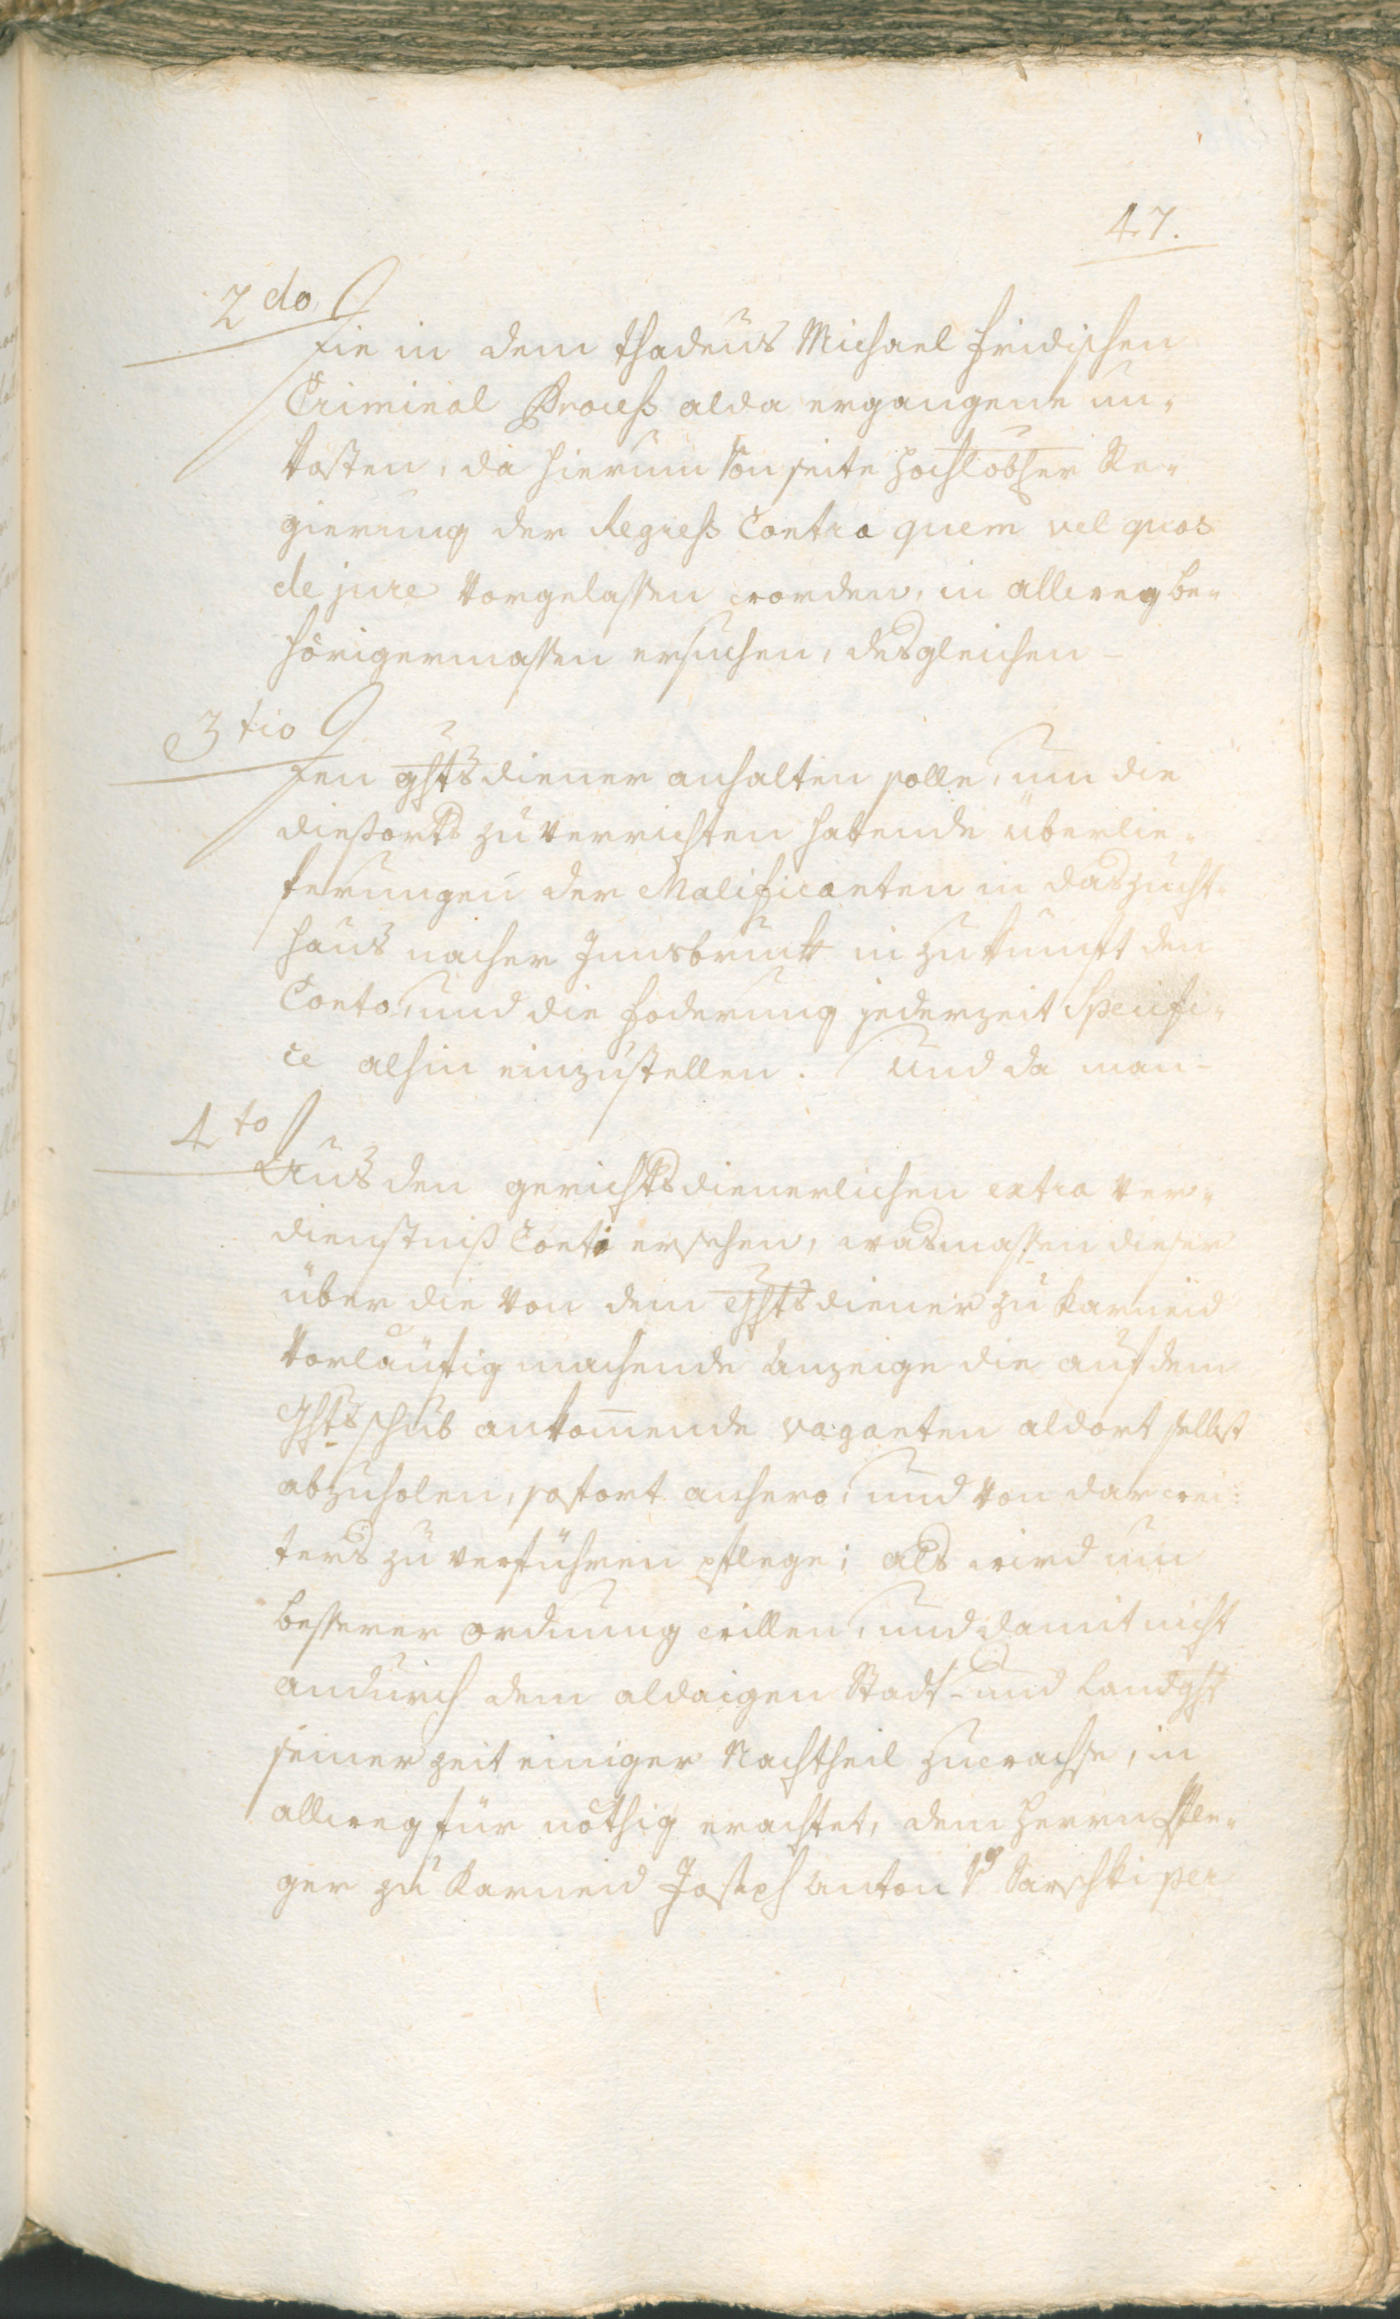 47.
2do
Die in dem Thadeus Michael Fridischen
Criminal Process alda ergangene un¬
kosten, da hierum von seite hochlöbher Re¬
gierung der Regreß Contra quem vel quos
de jure vorgelassen worden, in allweg be¬
hörigermassen ersuchen, desgleichen
3tio
Den ghtsdiener anhalten solle, um die
diesorts zu verrichten habende überlie¬
ferungen der Malificanten in das zucht¬
haus nacher Innsbrukk in zukunft den
Conto, und die foderung jederzeit Specifi¬
ce alhin einzustellen. Und da man
4to
Aus den gerichtsdienerlichen extra ver¬
dienstniß Conti ersehen, wasmassen dieser
über die von dem ghtsdiener zu Karneid
vorläufig machende Anzeige die auf dem
Ghts schub ankommende vaganten aldort selbst
abzuholen, sofort anhero, und von dar wei¬
ters zu verführen pflege; als wird um
besserer ordnung willen, und damit nicht
andurch dem aldaigen Stadt- und Landght
seiner zeit einiger Nachtheil zuwachse, in
allweg für nöthig erachtet, dem Herrn Pfle¬
ger zu Karneid Joseph Anton v. per